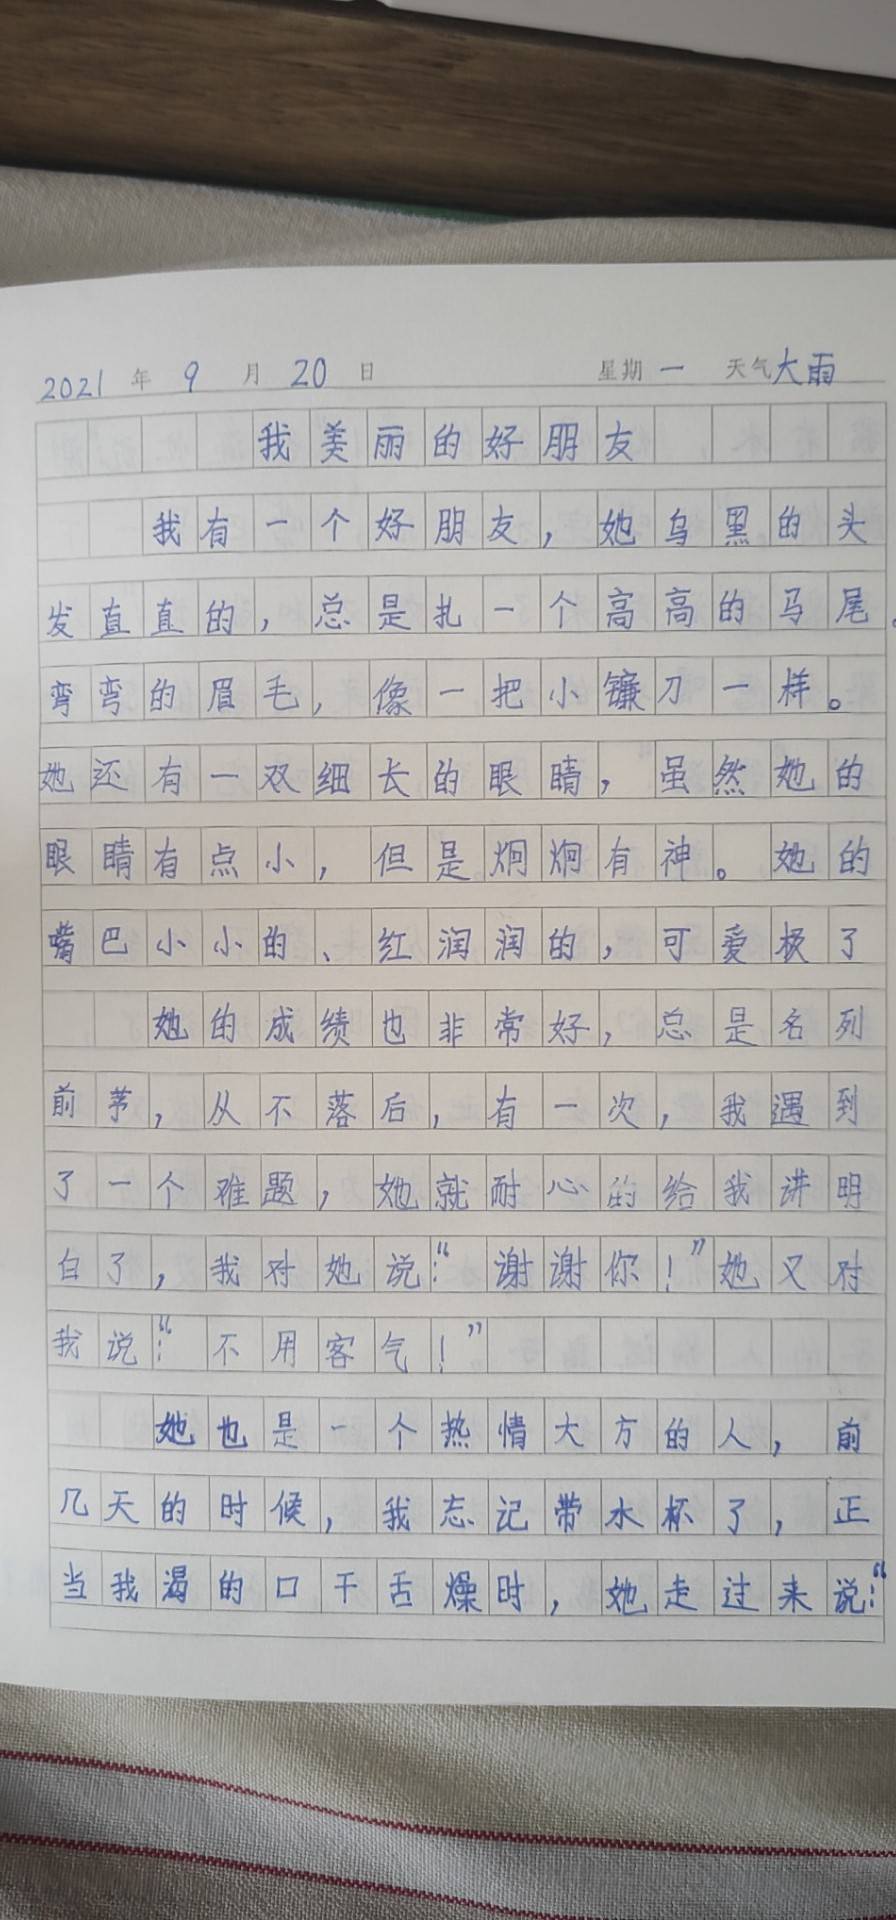 2021 年 9 月 20 日 星期 一 天气 大雨
我美丽的好朋友
我有一个好朋友，她乌黑的头
发直直的，总是扎一个高高的马尾。
弯弯的眉毛，像一把小镰刀一样。
她还有一双细长的眼睛，虽然她的
眼睛有点小，但是炯炯有神。她的
嘴巴小小的、红润润的，可爱极了
她的成绩也非常好，总是名列
前茅，从不落后，有一次，我遇到
了一个难题，她就耐心的给我讲明
白了，我对她说：“谢谢你！”她又对
我说：“不用客气！”
她也是一个热情大方的人，前
几天的时候，我忘记带水杯了，正
当我渴的口干舌燥时，她走过来说：“